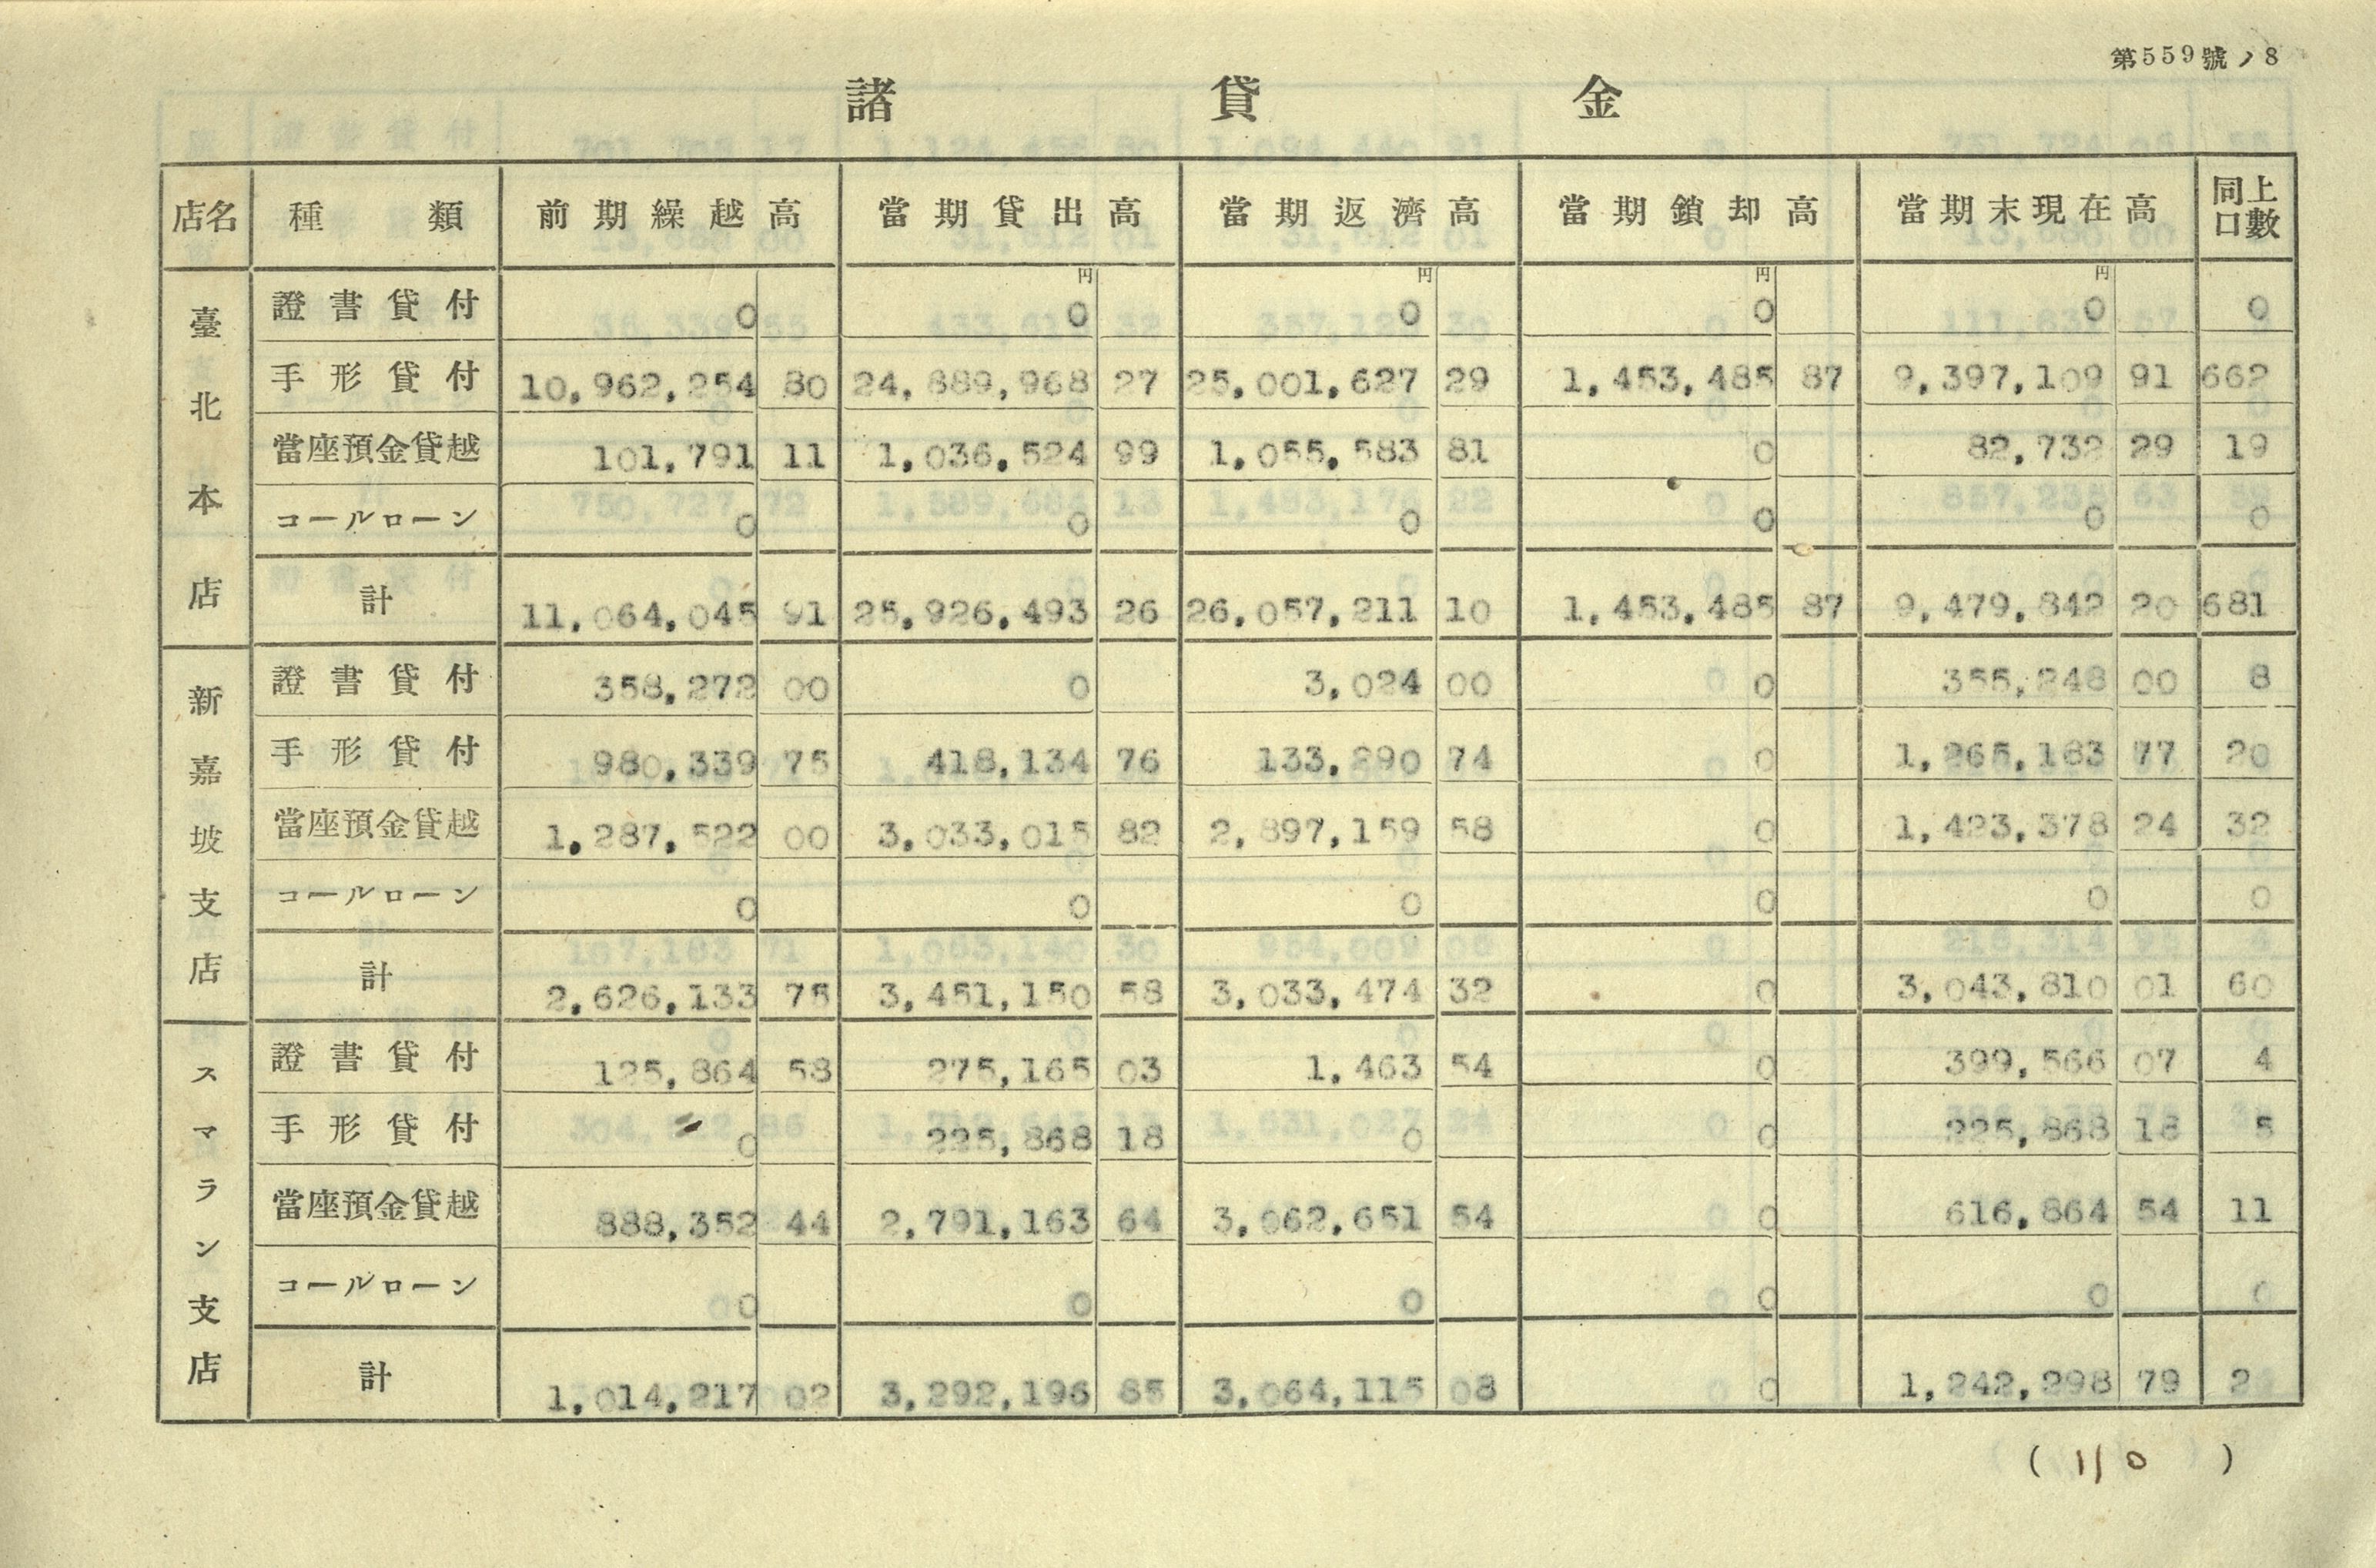 第559號ノ8
諸貸金
店名 種類 前期繰越高 當期貸出高 當期返濟高 當期鎖却高 當期末現在高 同上口數
円 円 円 円
臺北本店
證書貸付 0 0 0 0 0 0
手形貸付 10,962,254 80 24,889,968 27 25,001,627 29 1,453,485 87 9,397,109 91 662
當座預金貸越 101,791 11 1,036,524 99 1,055,583 81 0 82,732 29 19
コールローン 0 0 0 0 0 0
計 11,064,045 91 25,926,493 26 26,057,211 10 1,453,485 87 9,479,842 20 681
新嘉坡支店
證書貸付 358,272 00 0 3,024 00 0 355,248 00 8
手形貸付 980,339 75 418,134 76 133,290 74 0 1,265,183 77 20
當座預金貸越 1,287,522 00 3,033,015 82 2,897,159 58 0 1,423,378 24 32
コールローン 0 0 0 0 0 0
計 2,626,133 75 3,451,150 58 3,033,474 32 0 3,043,810 01 60
スマラン支店
證書貸付 125,864 58 275,165 03 1,463 54 0 399,566 07 4
手形貸付 0 225,868 18 0 0 225,868 18 5
當座預金貸越 888,352 44 2,791,163 64 3,062,651 54 0 616,864 54 11
コールローン 0 0 0 0 0 0
計 1,014,217 02 3,292,196 85 3,064,115 08 0 1,242,298 79 2
( 110 )